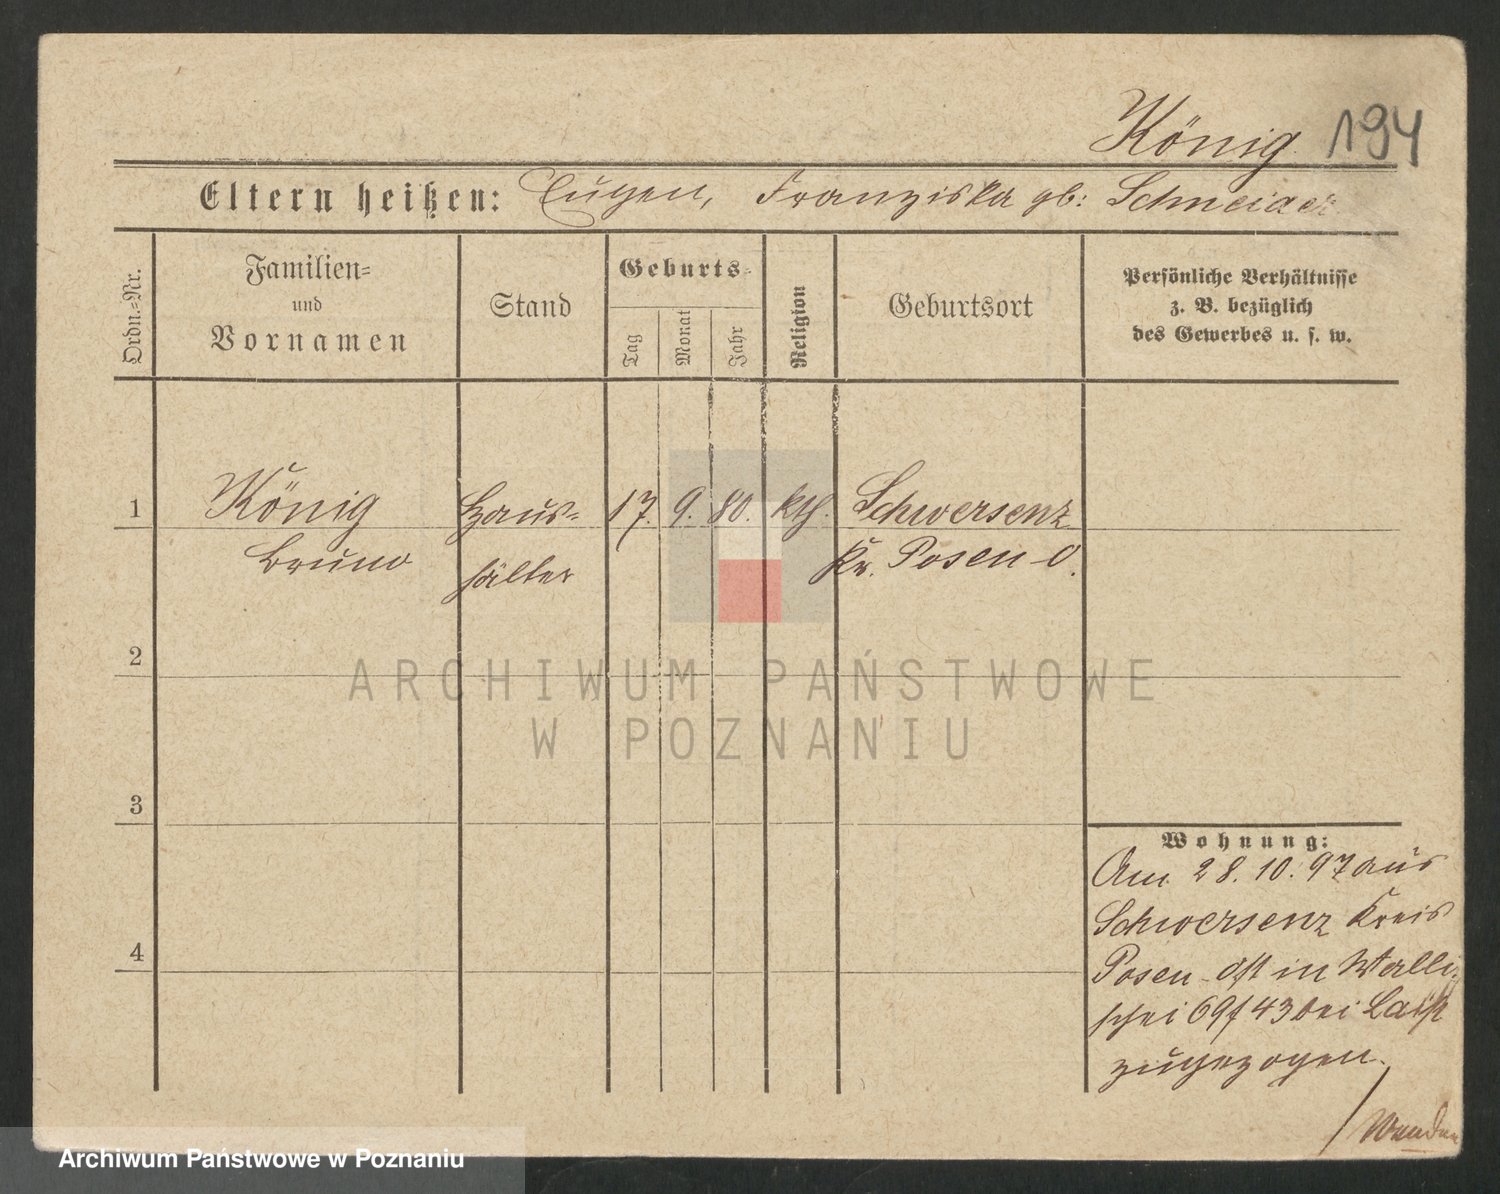 König 194
Eltern heißen: Eugen, Franziska gb: Schneider
Ordn.-Nr.
Familien-
und
Vornamen
Stand
Geburts-
Tag
Monat
Jahr
Religion
Geburtsort
Persönliche Verhältnisse
z. B. bezüglich
des Gewerbes u. s. w.
1 König Haus- 17. 9. 80. kth. Schwersenz
Bruno hälter Kr. Posen O.
2
ARCHIWUM PAŃSTWOWE
W POZNANIU
3
Wohnung:
Am 28. 10. 97 aus
Schwersenz Kreis
4
Posen Ost in Walli-
schei 69/43 bei
zugezogen.
Wenden
Archiwum Państwowe w Poznaniu